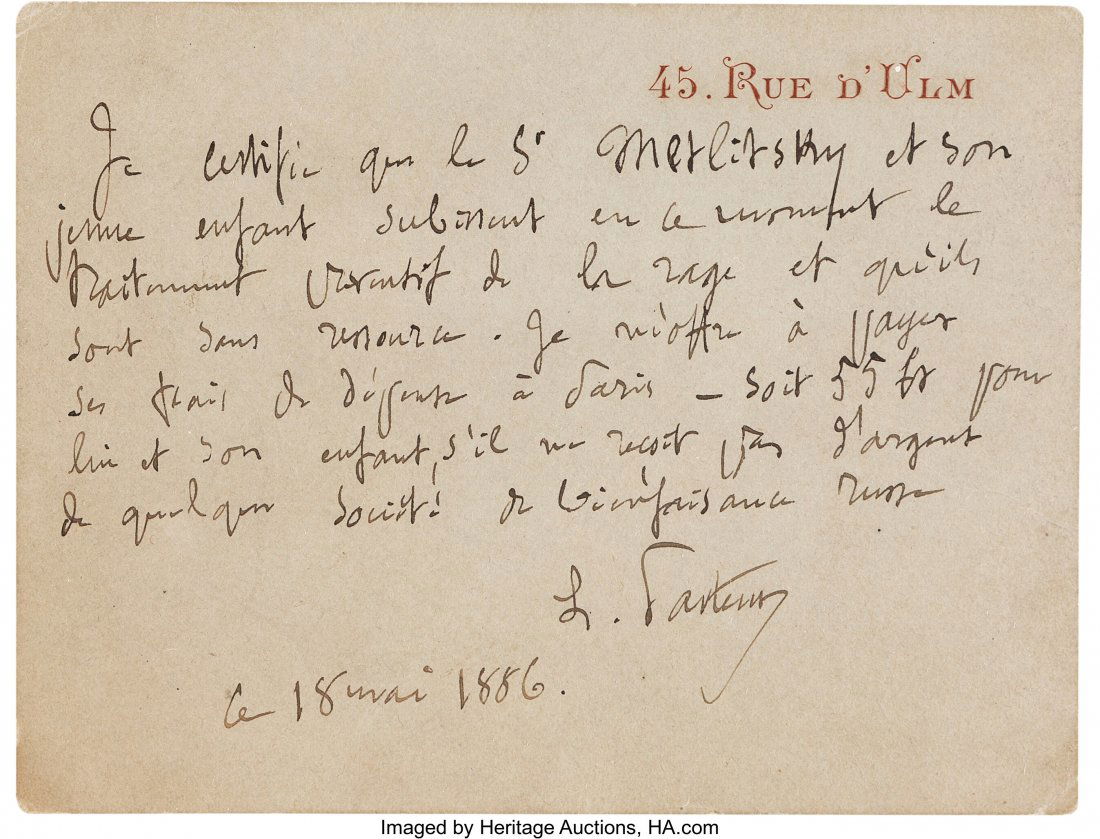 45. RUE D'ULM
Je certifie que le Sr Metlitsky et son
jeune enfant subissent en ce moment le
traitement préventif de la rage et qu'ils
sont sans ressource. Je m'offre à payer
ses frais de dépense à Paris — soit 55 fr pour
lui et son enfant, s'il ne reçoit pas d'argent
de quelque société de bienfaisance russe
L. Pasteur
Ce 18 mai 1886.
Imaged by Heritage Auctions, HA.com